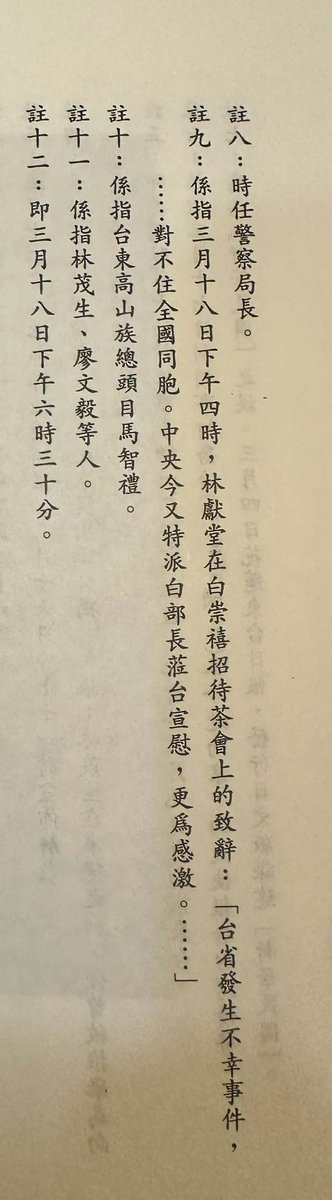 註八：時任警察局長。
註九：係指三月十八日下午四時，林獻堂在白崇禧招待茶會上的致辭：「台省發生不幸事件，
……對不住全國同胞。中央今又特派白部長蒞台宣慰，更爲感激。……」
註十：係指台東高山族總頭目馬智禮。
註十一：係指林茂生、廖文毅等人。
註十二：即三月十八日下午六時三十分。